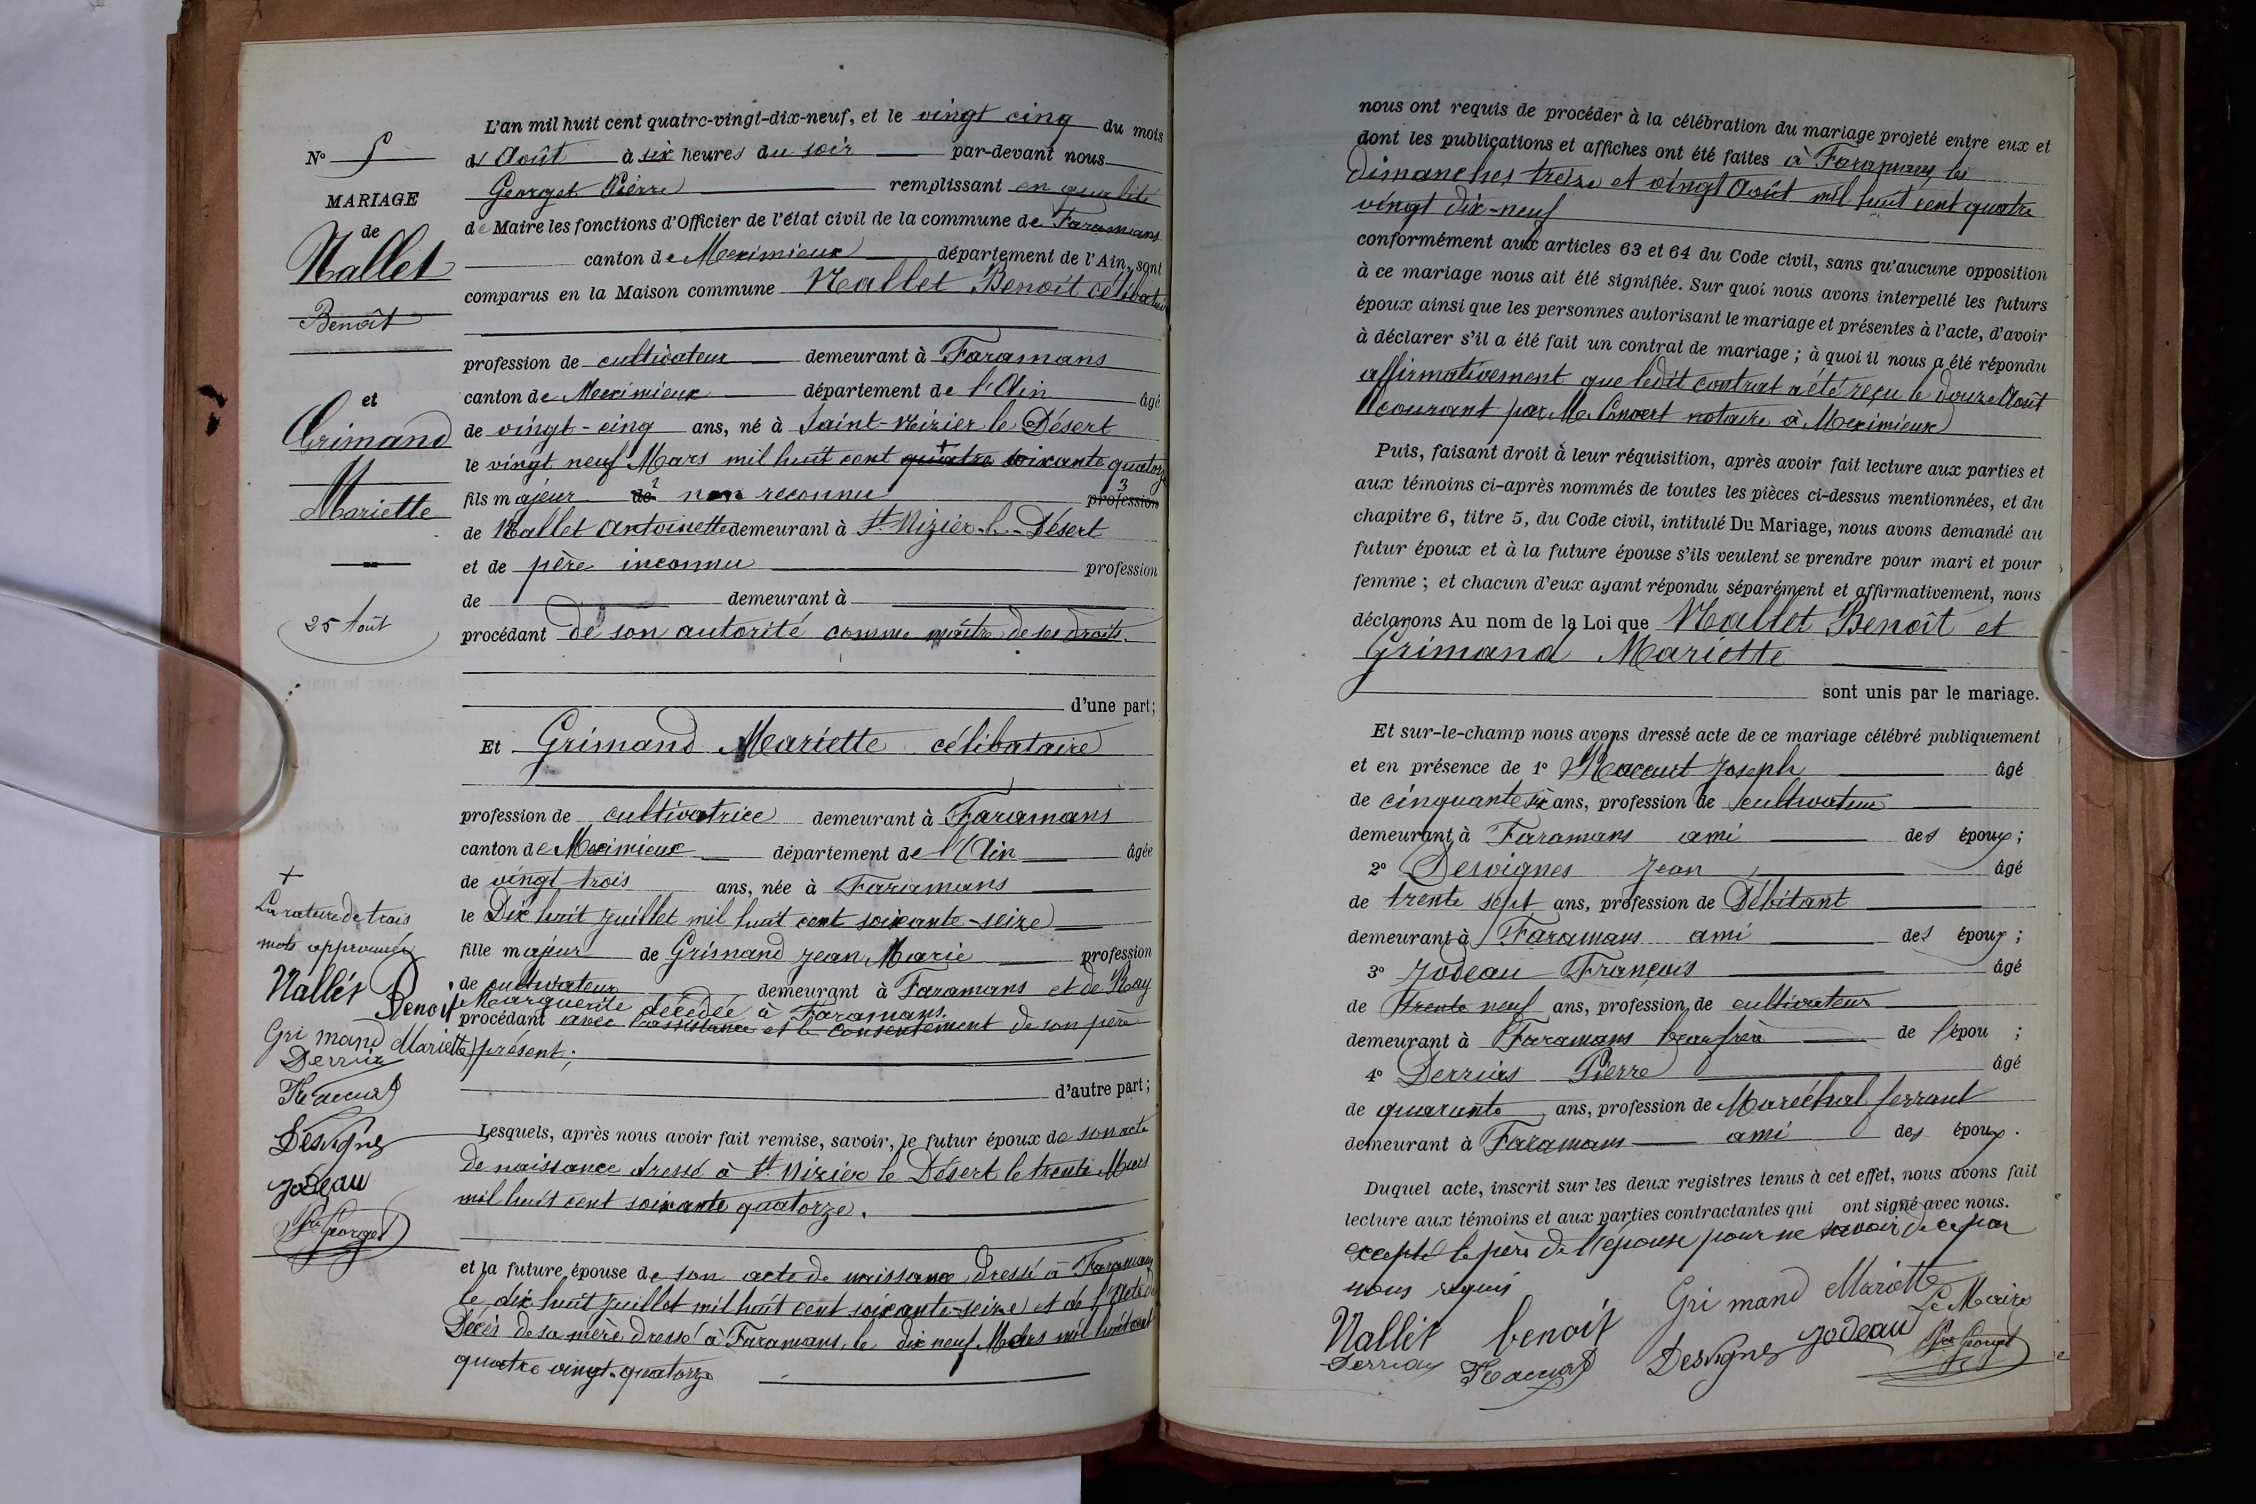 N° 5
MARIAGE
de
Nallet
Benoît
et
Grimand
Mariette
25 Août
+
La rature de trois
mots approuvée
Nallet Benoit
Gri mand Mariette
Derrias
Desvignes
Jodeau
Pre Georget
L'an mil huit cent quatre-vingt-dix-neuf, et le vingt cinq du mois
d'Août à six heures du soir par-devant nous
Georget Pierre remplissant en qualité
de Maire les fonctions d'Officier de l'état civil de la commune de Faramans
canton de Meximieux département de l'Ain, sont
comparus en la Maison commune Nallet Benoît célibataire
profession de cultivateur demeurant à Faramans
canton de Meximieux département de l'Ain âgé
de vingt-cinq ans, né à Saint-Nizier le Désert
le vingt neuf Mars mil huit cent quatre soixante quatorze
fils majeur de non reconnu profession
de Nallet Antoinette demeurant à St Nizier-le-Désert
et de père inconnu profession
de demeurant à
procédant de son autorité comme maître de ses droits.
d'une part;
Et Grimand Mariette célibataire
profession de cultivatrice demeurant à Faramans
canton de Meximieux département de l'Ain âgée
de vingt trois ans, née à Faramans
le Dix huit Juillet mil huit cent soixante-seize
fille majeur de Grimand Jean Marie profession
de cultivateur demeurant à Faramans et de Ray
Marguerite décédée à Faramans.
procédant avec l'assistance et le consentement de son père
présent;
d'autre part;
Lesquels, après nous avoir fait remise, savoir, le futur époux de son acte
de naissance dressé à St Nizier le Désert le trente Mars
mil huit cent soixante quatorze.
et la future épouse de son acte de naissance dressé à Faramans
le dix huit Juillet mil huit cent soixante-seize et de l'acte de
Décès de sa mère dressé à Faramans, le dix neuf Mars mil huit cent
quatre vingt-quatorze
nous ont requis de procéder à la célébration du mariage projeté entre eux et
dont les publications et affiches ont été faites à Faramans les
dimanches treize et vingt Août mil huit cent quatre
vingt dix-neuf
conformément aux articles 63 et 64 du Code civil, sans qu'aucune opposition
à ce mariage nous ait été signifiée. Sur quoi nous avons interpellé les futurs
époux ainsi que les personnes autorisant le mariage et présentes à l'acte, d'avoir
à déclarer s'il a été fait un contrat de mariage; à quoi il nous a été répondu
affirmativement que ledit contrat a été reçu le douze Août
courant par Me Convert notaire à Meximieux
Puis, faisant droit à leur réquisition, après avoir fait lecture aux parties et
aux témoins ci-après nommés de toutes les pièces ci-dessus mentionnées, et du
chapitre 6, titre 5, du Code civil, intitulé Du Mariage, nous avons demandé au
futur époux et à la future épouse s'ils veulent se prendre pour mari et pour
femme; et chacun d'eux ayant répondu séparément et affirmativement, nous
déclarons Au nom de la Loi que Nallet Benoît et
Grimand Mariette
sont unis par le mariage.
Et sur-le-champ nous avons dressé acte de ce mariage célébré publiquement
et en présence de 1° Joseph âgé
de cinquante six ans, profession de cultivateur
demeurant à Faramans ami des époux;
2° Desvignes Jean âgé
de trente sept ans, profession de Débitant
demeurant à Faramans ami des époux;
3° Jodeau François âgé
de trente neuf ans, profession de cultivateur
demeurant à Faramans beau frère de l'épou ;
4° Derrias Pierre âgé
de quarante ans, profession de Maréchal ferrant
demeurant à Faramans ami des époux.
Duquel acte, inscrit sur les deux registres tenus à cet effet, nous avons fait
lecture aux témoins et aux parties contractantes qui ont signé avec nous.
excepté le père de l'épouse pour ne savoir de ce par
nous requis
Gri mand Mariette
Le Maire
Nallet benoit
Derrias Desvignes Jodeau Pre Georget